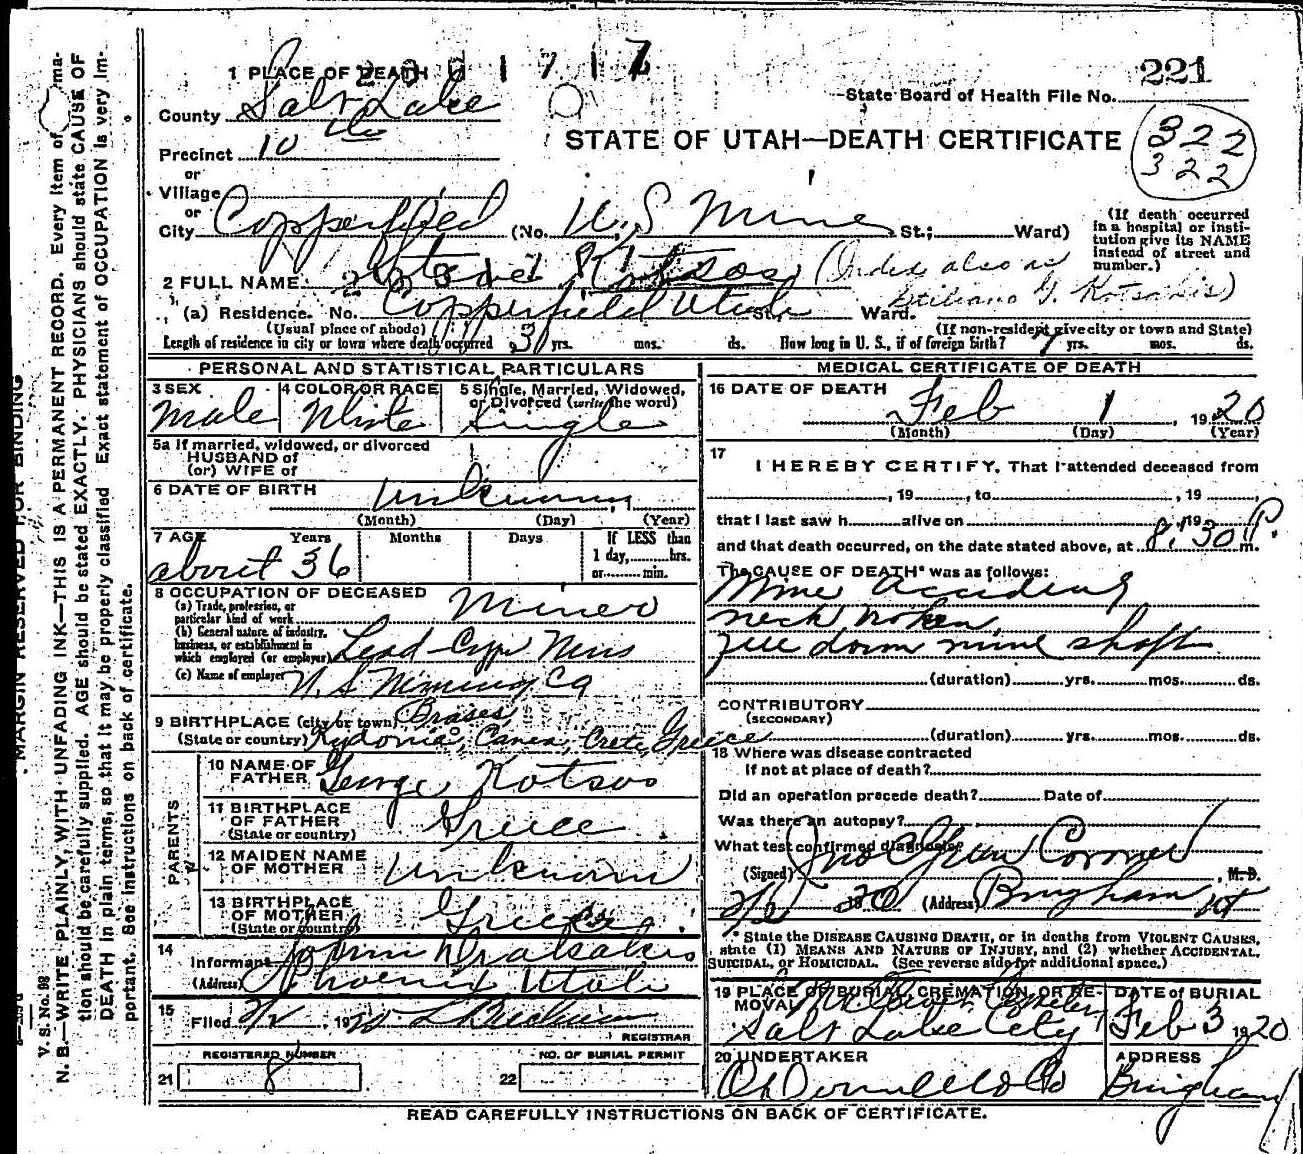 221
1 PLACE OF DEATH
State Board of Health File No.
County Salt Lake
322
322
STATE OF UTAH—DEATH CERTIFICATE
Precinct 10
or
Village
or
City Copperfield (No. U.S Mine St.; Ward)
(If death occurred in a hospital or insti-
tution give its NAME
instead of street and
number.)
2 FULL NAME Kotsos (Index also as
Stiliano G. Kotsakis)
(a) Residence. No. Copperfield Utah St., Ward.
(Usual place of abode)
(If non-resident give city or town and State)
Length of residence in city or town where death occurred 3 yrs. mos. ds. How long in U. S., if of foreign birth? 7 yrs. mos. ds.
PERSONAL AND STATISTICAL PARTICULARS
3 SEX
Male
4 COLOR OR RACE
White
5 Single, Married, Widowed,
or Divorced (write the word)
Single
5a If married, widowed, or divorced
HUSBAND of
(or) WIFE of
6 DATE OF BIRTH
Unknown
(Month) (Day) (Year)
7 AGE Years Months Days If LESS than
1 day, hrs.
or min.
about 36
8 OCCUPATION OF DECEASED
(a) Trade, profession, or
particular kind of work Miner
(b) General nature of industry,
business, or establishment in
which employed (or employer) Lead-
(c) Name of employer U. S Mining Co
9 BIRTHPLACE (city or town)
(State or country) Kydonia, Canea, Crete, Greece
PARENTS
10 NAME OF
FATHER George Kotsos
11 BIRTHPLACE
OF FATHER
(State or country) Greece
12 MAIDEN NAME
OF MOTHER Unknown
13 BIRTHPLACE
OF MOTHER
(State or country) Greece
14
Informant John
(Address) Phoenix Utah
15
Filed 2/2, 1920
REGISTRAR
REGISTERED NUMBER
21 8
NO. OF BURIAL PERMIT
22
MEDICAL CERTIFICATE OF DEATH
16 DATE OF DEATH
Feb 1, 1920
(Month) (Day) (Year)
17
I HEREBY CERTIFY, That I attended deceased from
, 19 , to , 19 ,
that I last saw h alive on , 19
and that death occurred, on the date stated above, at 8:30 P. m.
The CAUSE OF DEATH* was as follows:
Mine Accident
neck broken
fell down mine shaft
(duration) yrs. mos. ds.
CONTRIBUTORY
(SECONDARY)
(duration) yrs. mos. ds.
18 Where was disease contracted
If not at place of death?
Did an operation precede death? Date of
Was there an autopsy?
What test confirmed diagnosis?
(Signed) Jno C Green Coroner, M.D.
1920 (Address) Bingham Ut
* State the DISEASE CAUSING DEATH, or in deaths from VIOLENT CAUSES,
state (1) MEANS AND NATURE OF INJURY, and (2) whether ACCIDENTAL,
SUICIDAL, or HOMICIDAL. (See reverse side for additional space.)
19 PLACE OF BURIAL, CREMATION, OR RE-
MOVAL
Salt Lake City
DATE of BURIAL
Feb 3 1920
20 UNDERTAKER
O'Donnell & Co
ADDRESS
Bingham
READ CAREFULLY INSTRUCTIONS ON BACK OF CERTIFICATE.
MARGIN RESERVED FOR BINDING
V. S. No. 98
N. B.—WRITE PLAINLY, WITH UNFADING INK—THIS IS A PERMANENT RECORD. Every item of informa-
tion should be carefully supplied. AGE should be stated EXACTLY. PHYSICIANS should state CAUSE OF
DEATH in plain terms, so that it may be properly classified. Exact statement of OCCUPATION is very im-
portant. See instructions on back of certificate.